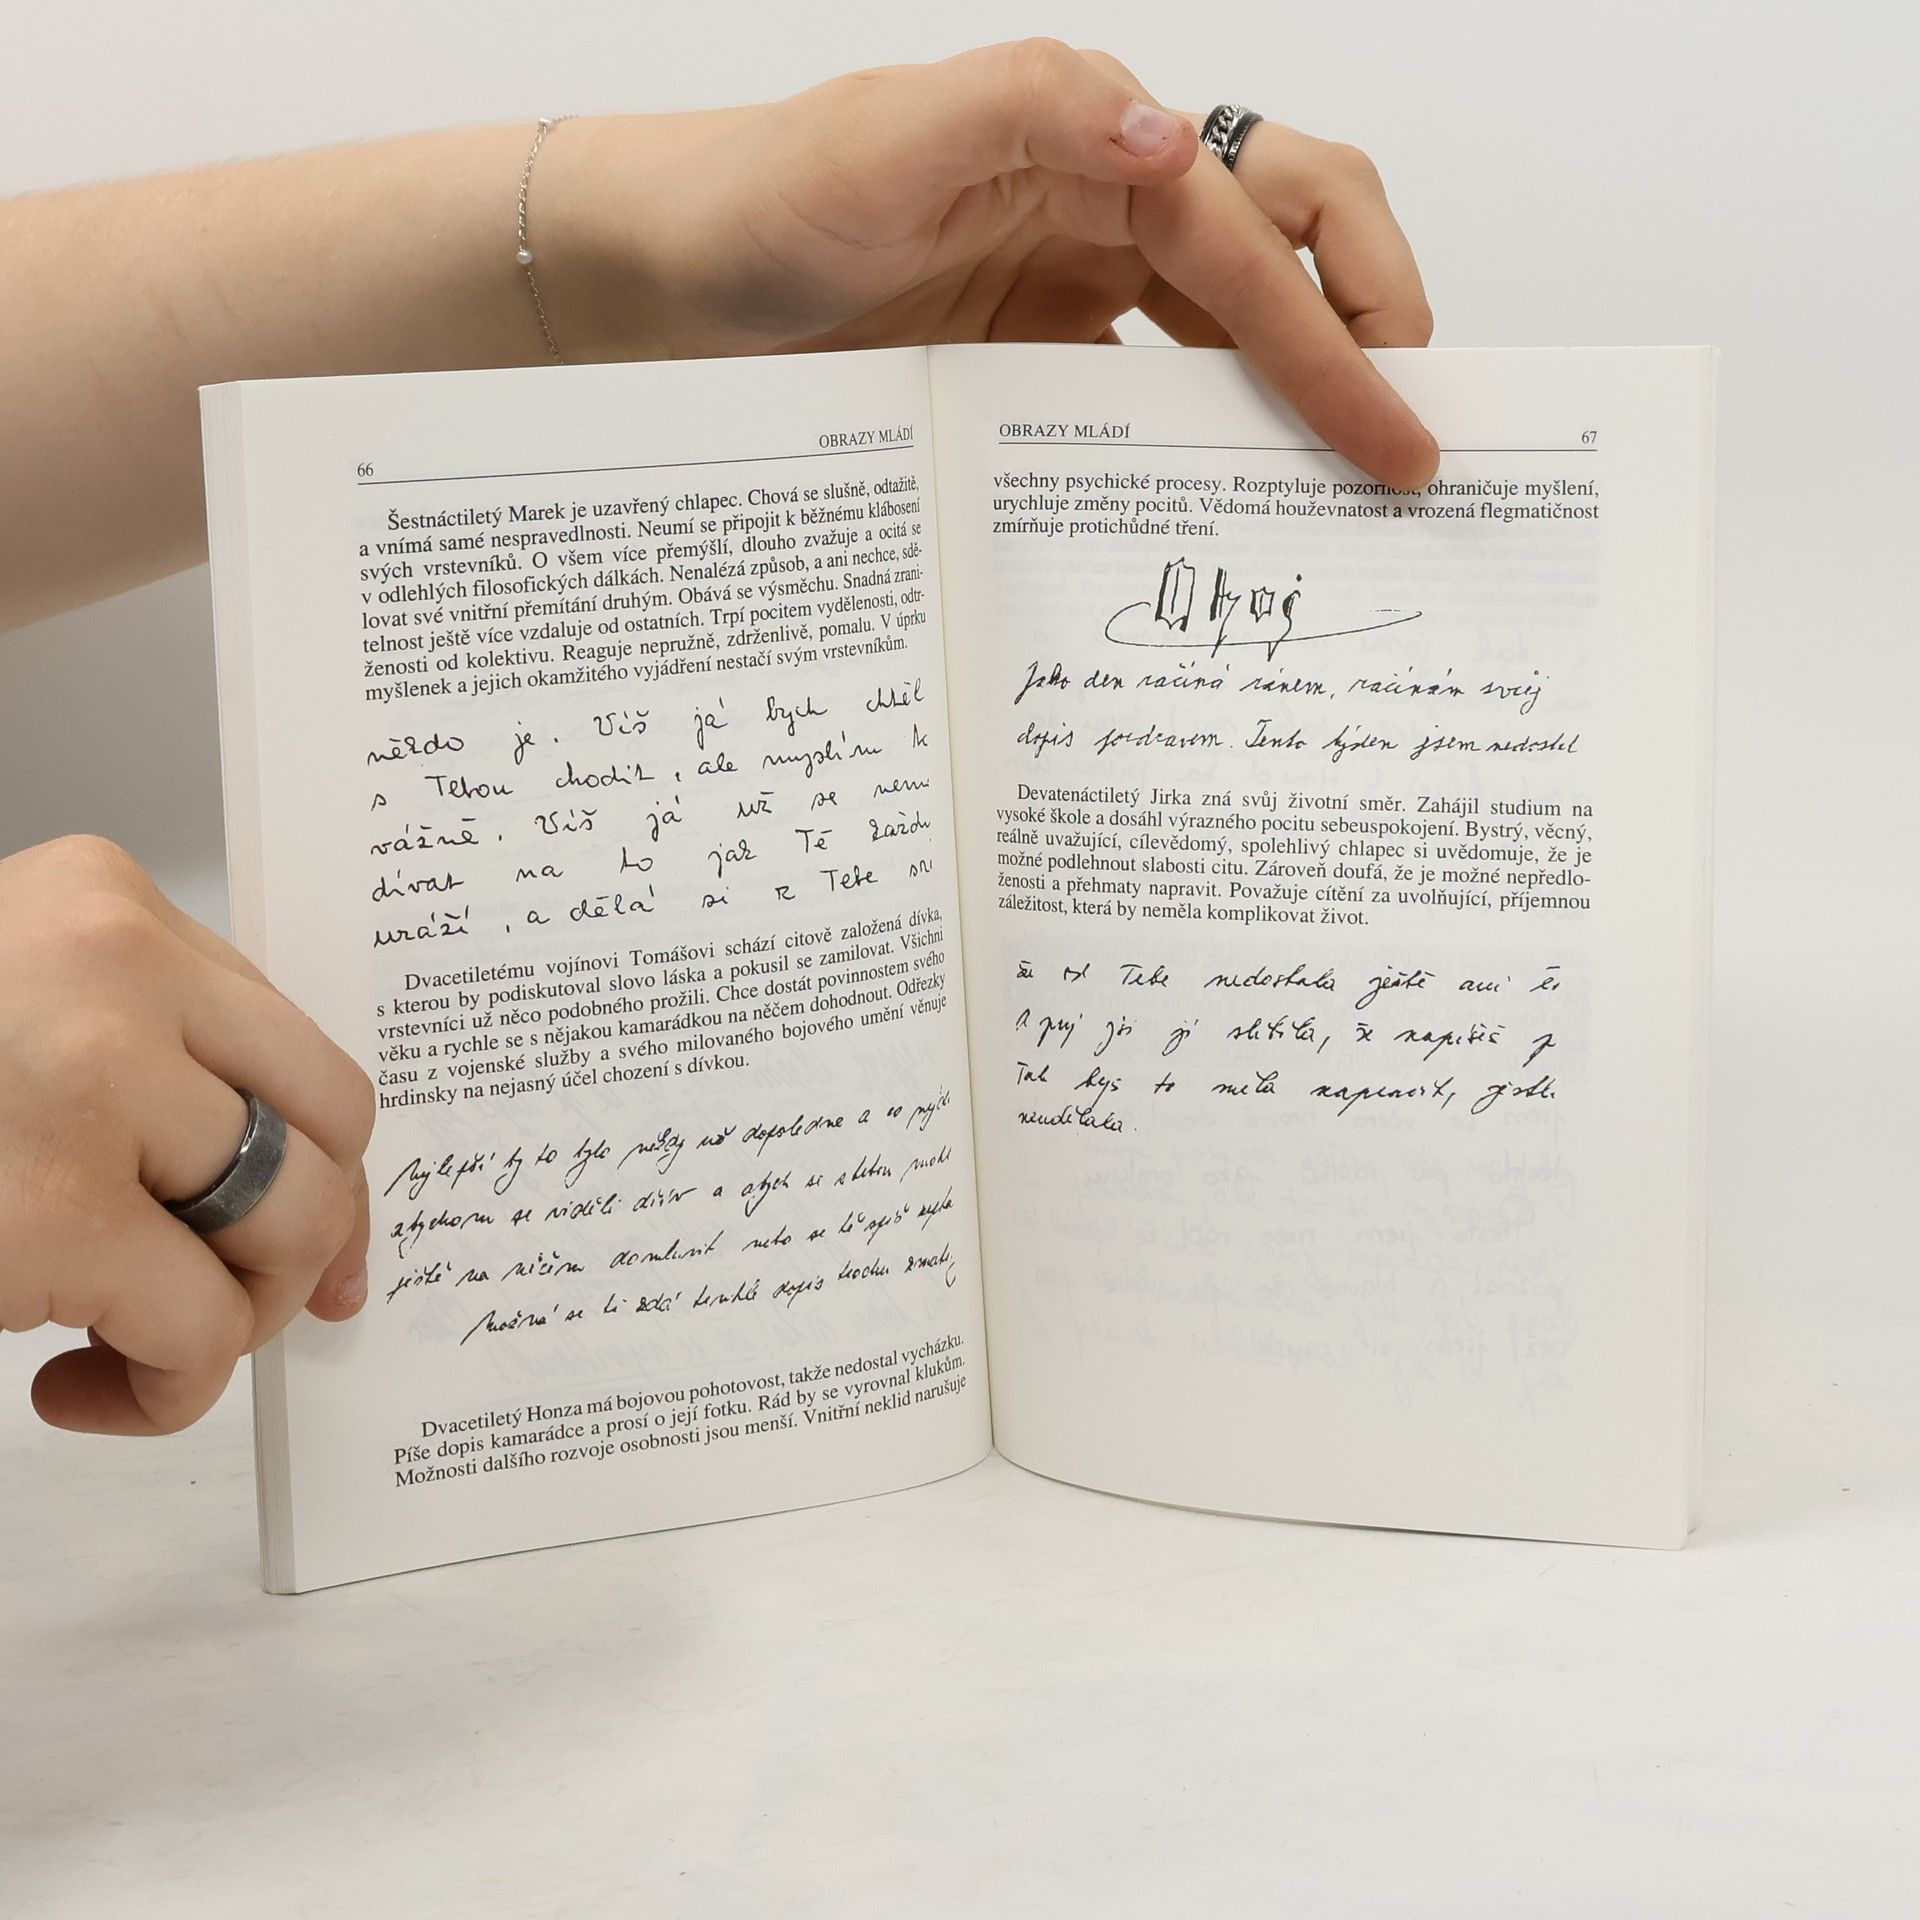 66
OBRAZY MLÁDÍ
Šestnáctiletý Marek je uzavřený chlapec. Chová se slušně, odtažitě,
a vnímá samé nespravedlnosti. Neumí se připojit k běžnému klábosení
svých vrstevníků. O všem více přemýšlí, dlouho zvažuje a ocitá se
v odlehlých filosofických dálkách. Nenalézá způsob, a ani nechce, sdě-
lovat své vnitřní přemítání druhým. Obává se výsměchu. Snadná zrani-
telnost ještě více vzdaluje od ostatních. Trpí pocitem vydělenosti, odtr-
ženosti od kolektivu. Reaguje nepružně, zdrženlivě, pomalu. V úprku
myšlenek a jejich okamžitého vyjádření nestačí svým vrstevníkům.
někdo je. Víš já bych chtěl
s Tebou chodit, ale myslím to
vážně. Víš já už se nemu
dívat na to jak Tě každ
uráží, a dělá si z Tebe
Dvacetiletému vojínovi Tomášovi schází citově založená dívka,
s kterou by podiskutoval slovo láska a pokusil se zamilovat. Všichni
vrstevníci už něco podobného prožili. Chce dostát povinnostem svého
věku a rychle se s nějakou kamarádkou na něčem dohodnout. Odřezky
času z vojenské služby a svého milovaného bojového umění věnuje
hrdinsky na nejasný účel chození s dívkou.
Nejlepší by to bylo někdy už dopoledne a co nejd
abychom se viděli dřív a abych se s tebou mohl
ještě na něčem domluvit nebo se tě spíš
Možná se ti zdá tenhle dopis trochu
Dvacetiletý Honza má bojovou pohotovost, takže nedostal vycházku.
Píše dopis kamarádce a prosí o její fotku. Rád by se vyrovnal klukům.
Možnosti dalšího rozvoje osobnosti jsou menší. Vnitřní neklid narušuje
OBRAZY MLÁDÍ
67
všechny psychické procesy. Rozptyluje pozornost, ohraničuje myšlení,
urychluje změny pocitů. Vědomá houževnatost a vrozená flegmatičnost
zmírňuje protichůdné tření.
Ahoj
Jako den začíná ránem, začínám svůj
dopis pozdravem. Tento týden jsem nedostal
Devatenáctiletý Jirka zná svůj životní směr. Zahájil studium na
vysoké škole a dosáhl výrazného pocitu sebeuspokojení. Bystrý, věcný,
reálně uvažující, cílevědomý, spolehlivý chlapec si uvědomuje, že je
možné podlehnout slabosti citu. Zároveň doufá, že je možné nepředlo-
ženosti a přehmaty napravit. Považuje cítění za uvolňující, příjemnou
záležitost, která by neměla komplikovat život.
že od Tebe nedostala ještě ani
A prý jsi jí slíbila, že napíšeš p
Tak bys to měla napravit, jestli
neudělala.